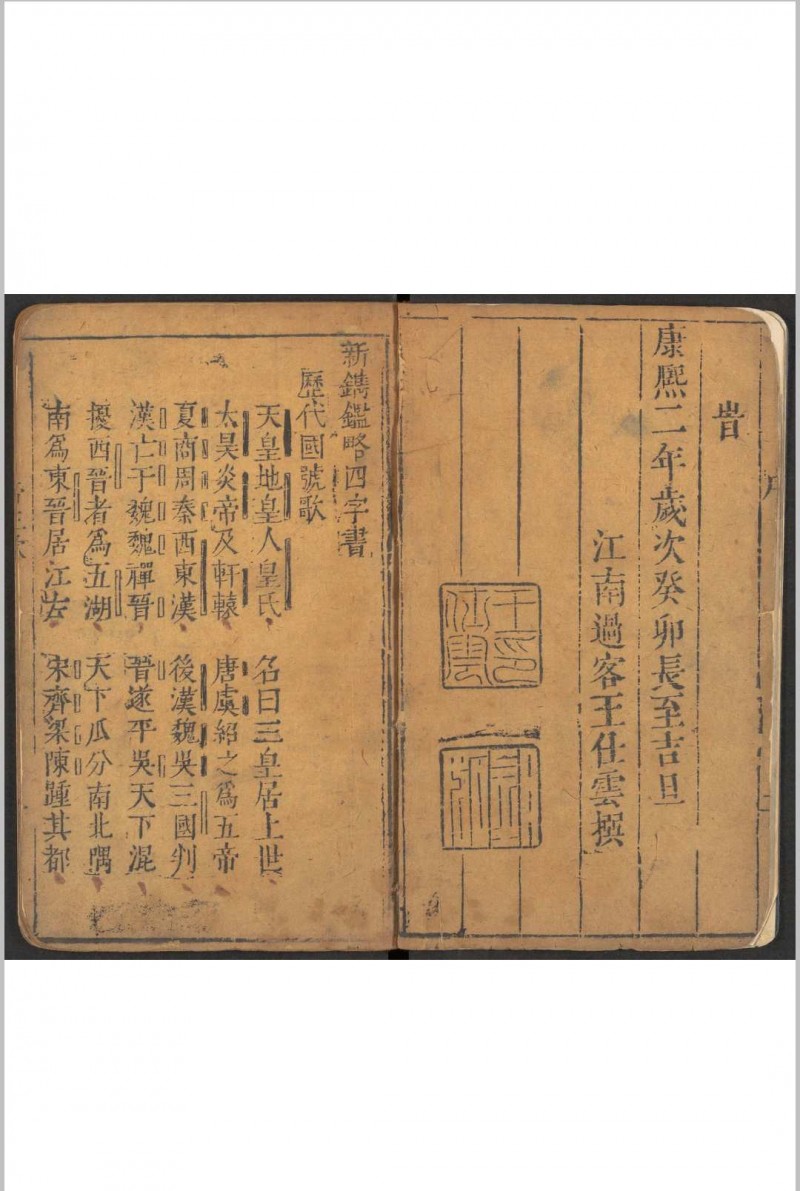 旹
康熙二年歲次癸卯長至吉旦
江南過客王仕雲撰
王印仕雲
新鐫鑑略四字書
歷代國號歌
天皇地皇人皇氏 名曰三皇居上世
太昊炎帝及軒轅 唐虞紹之爲五帝
夏商周秦西東漢 後漢魏吳三國判
漢亡于魏魏禪晉 晉遂平吳天下混
擾西晉者爲五湖 天下瓜分南北隅
南爲東晉居江左 宋齊梁陳踵其都